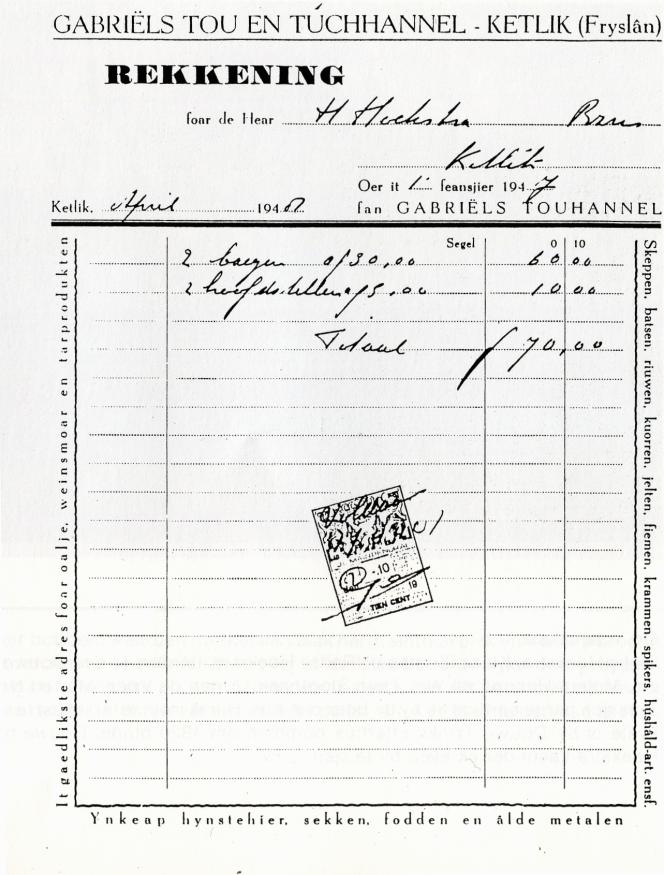 GABRIËLS TOU EN TÚCHHANNEL - KETLIK (Fryslân)
REKKENING
foar de Hear H Hoekstra Bzns
Ketlik
Oer it 1e feansjier 1947
Ketlik, April 194
fan GABRIËLS TOUHANNEL
Segel 0 10
2 a f 30,00 60 00
2 hoofdstellen a f 5,00 10.00
Totaal f 70,00
-.10
19
TIEN CENT
It gaedlikste adres foar oalje, weinsmoar en tarprodukten
Skeppen, batsen, riuwen, kuorren, jelten, fiemen, krammen, spikers, húshâld-art. ensf.
Ynkeap hynstehier, sekken, fodden en âlde metalen